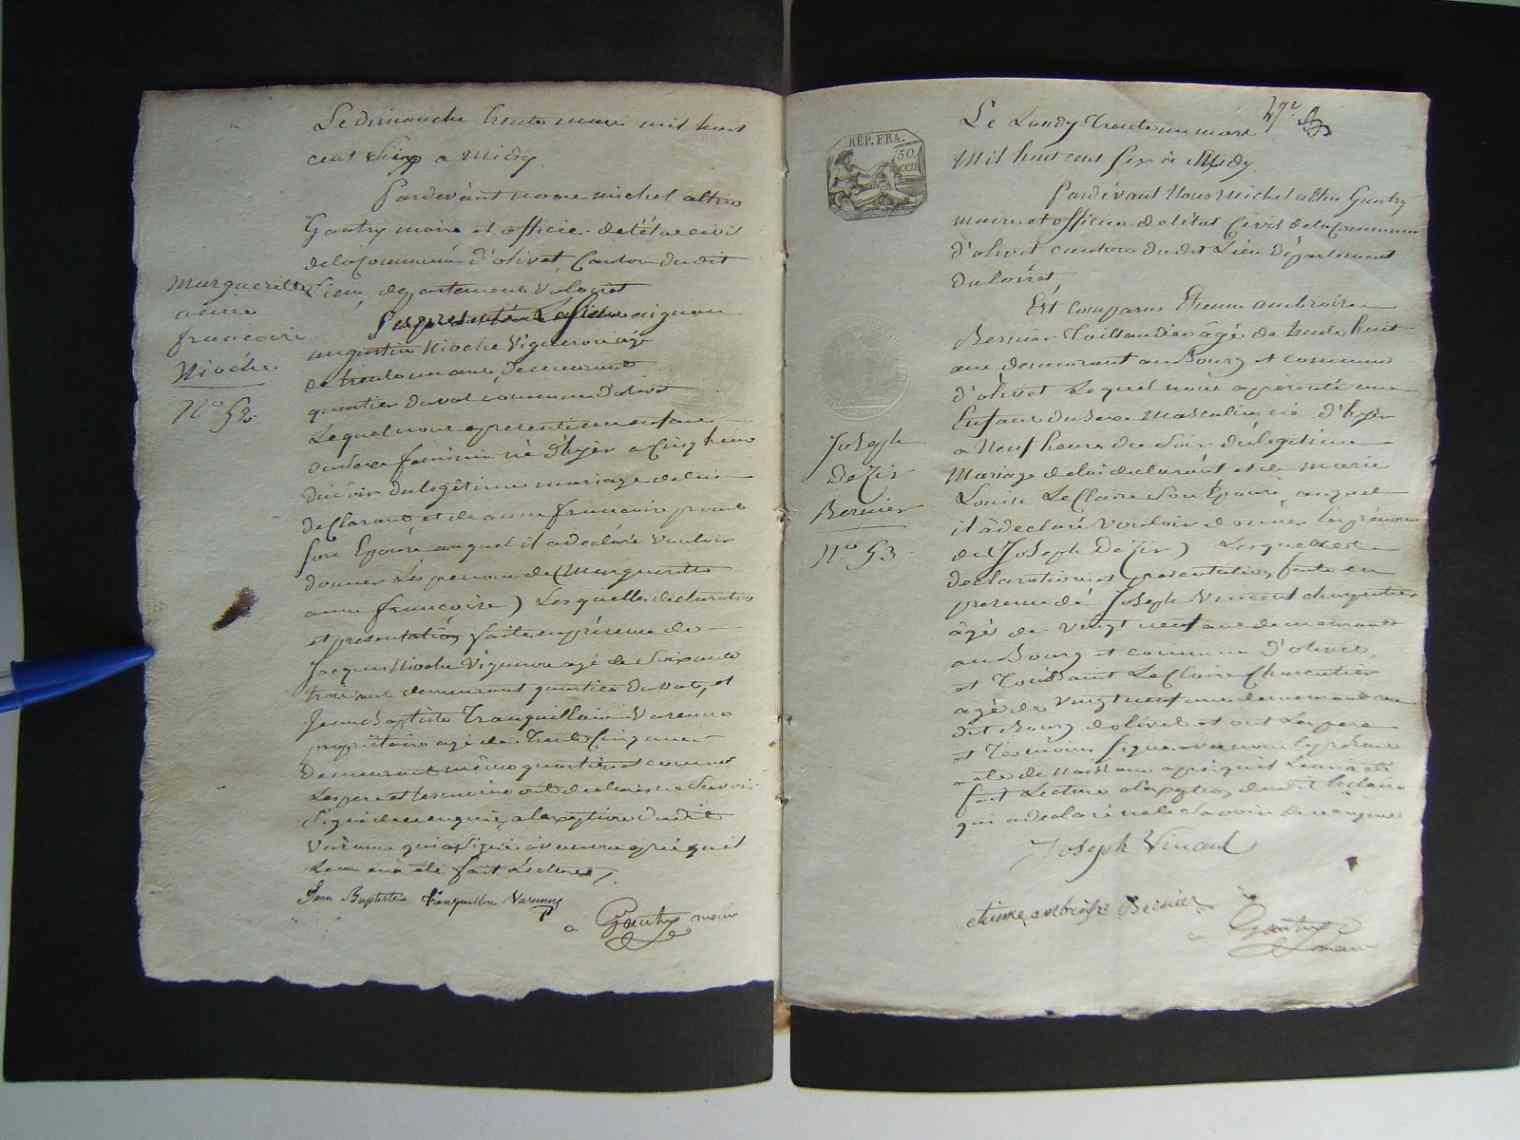 Le dimanche trente mars mil huit
cent six a midy
Pardevant nous michel altin
Gautry maire et officier de l'état civil
de la Commune d'olivet, Canton du dit
Lieu, departement du loiret
S'est presenté Le Sieur aignan
augustin Nioche Vigneron agé
de trente un ans, demeurant
quartier du val commune d'olivet
Lequel nous a presenté un enfant
du sexe feminin né d'hyer a Cinq heures
du soir du legitime mariage de lui
declarant et de anne françoise
son Epouse auquel il a declaré vouloir
donner Les prenoms de (Margueritte
anne françoise) Lesquelles declaration
et presentation faite en presence de
Jacques Nioche Vigneron agé de soixante
trois ans demeurant quartier du val, et
Jean Baptiste Tranquillain Varenne
propriétaire agé de Trente Cinq ans
demeurant même quartier et commune
Les pere et temoins ont declaré ne Savoir
Signé de ce enquis, a l'exeption du dit
Varenne qui a Signé avec nous après qu'il
Leur en a été fait Lecture
Jean Baptiste tranquillin Varenne
Gautry maire
Margueritte
anne
françoise
Nioche
N.º 52
27e
REP. FRA.
50
cen
Le Lundy trente un mars
Mil huit cent six à Midy
Pardevant Nous Michel altin Gautry
maire et officier de l'état Civil de la Commune
d'olivet canton du dit Lieu Département
du loiret
Est comparu Etienne ambroise
Bernier Taillandier âgé de trente huit
ans demeurant au Bourg et commune
d'olivet Lequel nous a presenté un
Enfant du sexe Masculin, né d'hyer
a Neuf heures du soir du legitime
Mariage de lui declarant et de marie
Louise LeClaire Son Epouse auquel
il à declaré vouloir donner les prénoms
de (Joseph Dezir) Lesquelles
declaration et presentation, faite en
presence de Joseph Vincent charpentier
âgé de vingt neuf ans demeurant
au Bourg et commune d'olivet,
et Toussaint LeClaire Charpentier
agé de vingt neuf ans demeurant au
dit Bourg d'olivet et ont Les pere
et Temoins Signé avec nous le présent
acte de Naissance après qu'il Leur en a été
fait Lecture a l'exeption du dit leclaire
qui a declaré ne le Savoir de ce enquis
Joseph Vincent
etienne ambroise Bernier
Gautry
maire
Joseph
Dezir
Bernier
N.º 53